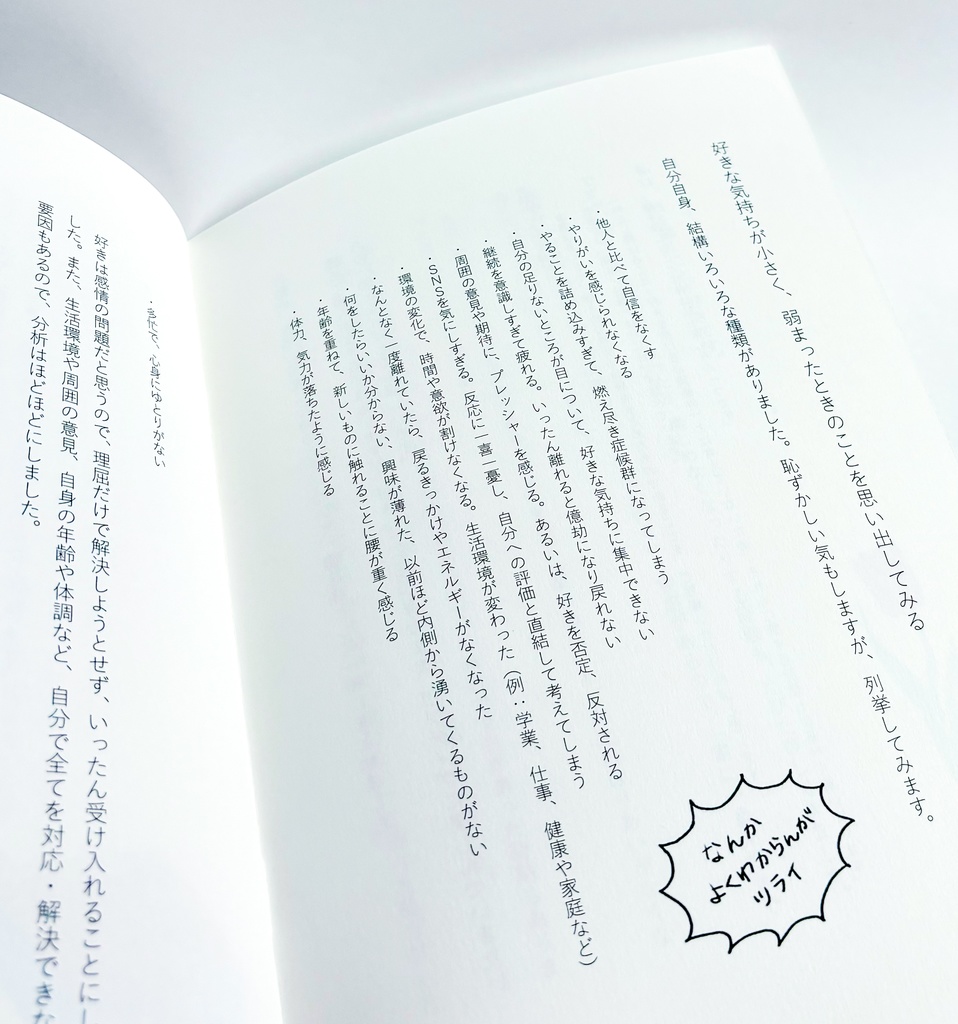 好きな気持ちが小さく、弱まったときのことを思い出してみる
自分自身、結構いろいろな種類がありました。恥ずかしい気もしますが、列挙してみます。
・他人と比べて自信をなくす
・やりがいを感じられなくなる
・やることを詰め込みすぎて、燃え尽き症候群になってしまう
・自分の足りないところが目について、好きな気持ちに集中できない
・継続を意識しすぎて疲れる。いったん離れると億劫になり戻れない
・周囲の意見や期待に、プレッシャーを感じる。あるいは、好きを否定、反対される
・SNSを気にしすぎる。反応に一喜一憂し、自分への評価と直結して考えてしまう
・環境の変化で、時間や意欲が割けなくなる。生活環境が変わった（例：学業、仕事、健康や家庭など）
・なんとなく一度離れていたら、戻るきっかけやエネルギーがなくなった
・何をしたらいいか分からない、興味が薄れた、以前ほど内側から湧いてくるものがない
・年齢を重ねて、新しいものに触れることに腰が重く感じる
・体力、気力が落ちたように感じる
なんか
よくわからんが
ツライ
心身にゆとりがない
好きは感情の問題だと思うので、理屈だけで解決しようとせず、いったん受け入れることにし
した。また、生活環境や周囲の意見、自身の年齢や体調など、自分で全てを対応・解決できな
要因もあるので、分析はほどほどにしました。